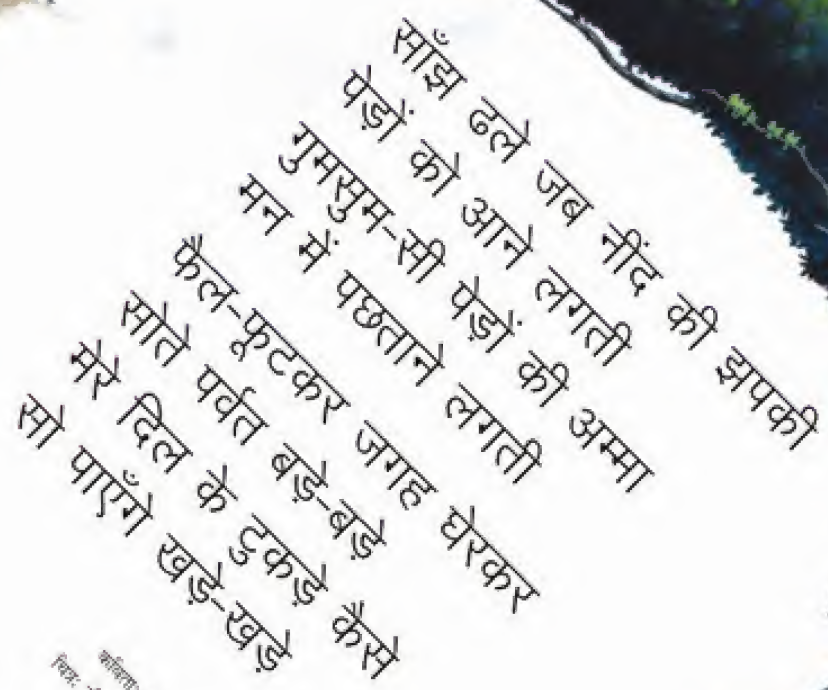 साँझ ढले जब नींद की झपकी
पेड़ों को आने लगती
गुमसुम-सी पेड़ों की अम्मा
मन में पछताने लगती
फैल-फूटकर जगह घेरकर
सोते पर्वत बड़े-बड़े
मेरे दिल के टुकड़े कैसे
सो पाएँगे खड़े-खड़े
कविता:
चित्र: